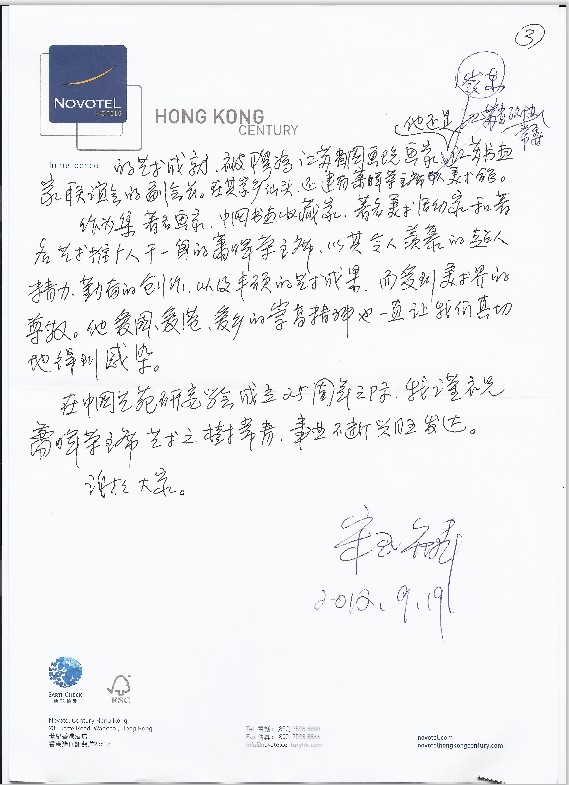 ③
NOVOTEL
HOTELS
HONG KONG
CENTURY
他还是
常委
的艺术成就,被聘为江苏省国画院画家、江苏书画
家联谊会的副会长。在其家乡汕头,还建有萧晖荣美术馆。
作为集著名画家、中国书画收藏家、著名美术活动家和著
名艺术推广人于一身的萧晖荣主席,以其令人羡慕的超人
精力、勤奋的创作,以及丰硕的艺术成果,而受到美术界的
尊敬。他爱国、爱港、爱乡的崇高精神也一直让我们真切
地得到感染。
在中国艺苑研究学会成立25周年之际,特谨祝
萧晖荣主席艺术之樹常青,事业不断兴旺发达。
谢谢大家。
2012.9.19
EARTH CHECK
FSC
Novotel Century Hong Kong
238 Jaffe Road, Wanchai, Hong Kong
novotel.com
novotelhongkongcentury.com